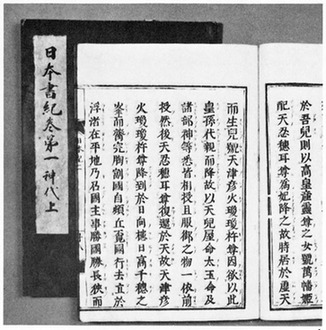 日本書紀巻第一 神代上
於吾兒則以高皇産靈尊之女號萬幡姫
配天忍穗耳尊爲妃降之故時居於虛天
而生兒號天津彦火瓊瓊杵尊因欲以此
皇孫代親而降故以天兒屋命太玉命及
諸部神等悉皆相授且服御之物一依前
授然後天忍穗耳尊復還於天故天津彦
火瓊瓊杵尊降到於日向槵日高千穗之
峯而膂宍胸副國自頓丘覓國行去立於
浮渚在平地乃召國主事勝國勝長狹而